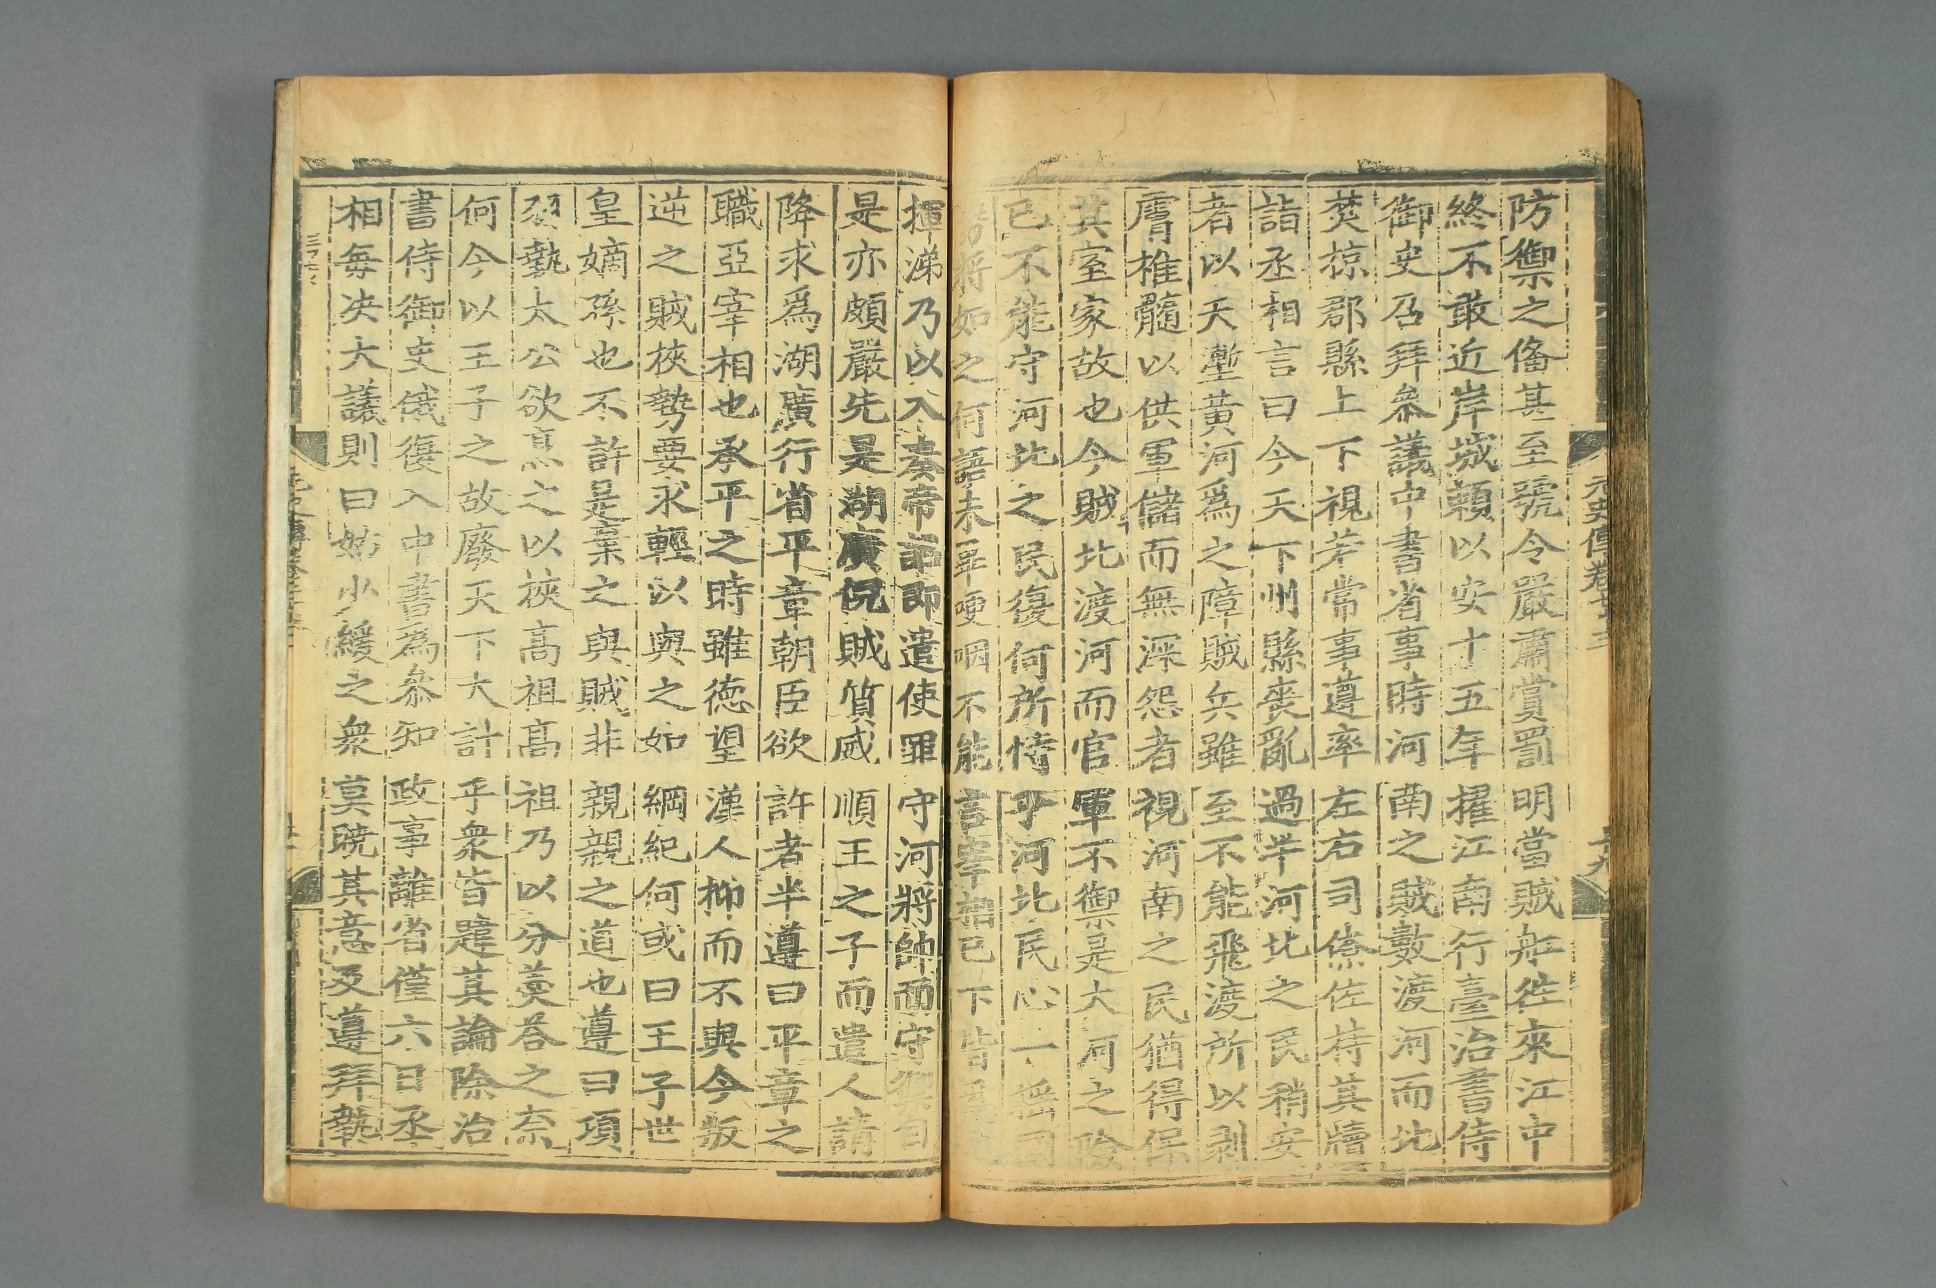 防禦之備甚至號令嚴肅賞罰明當賊舟徃來江中
終不敢近岸城賴以安十五年擢江南行臺治書侍
御史召拜叅議中書省事時河南之賊數渡河而北
焚掠郡縣上下視若常事遵率左右司僚佐持其牘
詣丞相言曰今天下州縣喪亂過半河北之民稍安
者以天塹黃河爲之障賊兵雖至不能飛渡所以剥
膚椎髓以供軍儲而無深怨者視河南之民猶得保
其室家故也今賊北渡河而官軍不禦是大河之險
已不能守河北之民復何所恃乎河北民心一摇國
勢將如之何語未畢哽咽不能言宰相已下皆
揮涕乃以入奏帝詔即遣使罪守河將帥而守禦自
是亦頗嚴先是湖廣倪賊質威順王之子而遣人請
降求爲湖廣行省平章朝臣欲許者半遵曰平章之
職亞宰相也承平之時雖德望漢人抑而不與今叛
逆之賊挾勢要求輕以與之如綱紀何或曰王子世
皇嫡孫也不許是棄之與賊非親親之道也遵曰項
羽執太公欲烹之以挾高祖高祖乃以分羹荅之奈
何今以王子之故廢天下大計乎衆皆韙其論除治
書侍御史俄復入中書爲叅知政事離省僅六日丞
相每决大議則曰姑少緩之衆莫曉其意及遵拜執
元史傳卷七十三